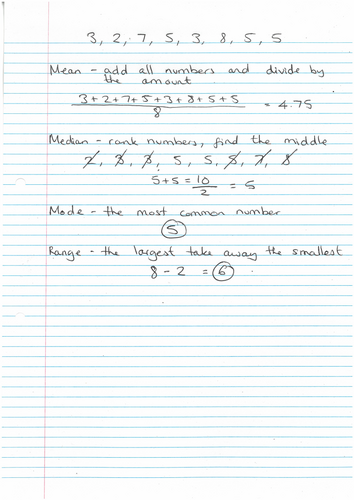 3, 2, 7, 5, 3, 8, 5, 5
Mean - add all numbers and divide by
the amount
3+2+7+5+3+8+5+5
8
= 4.75
Median - rank numbers, find the middle
2, 3, 3, 5, 5, 5, 7, 8
5+5 = 10
2
= 5
Mode - the most common number
5
Range - the largest take away the smallest
8 - 2 = 6